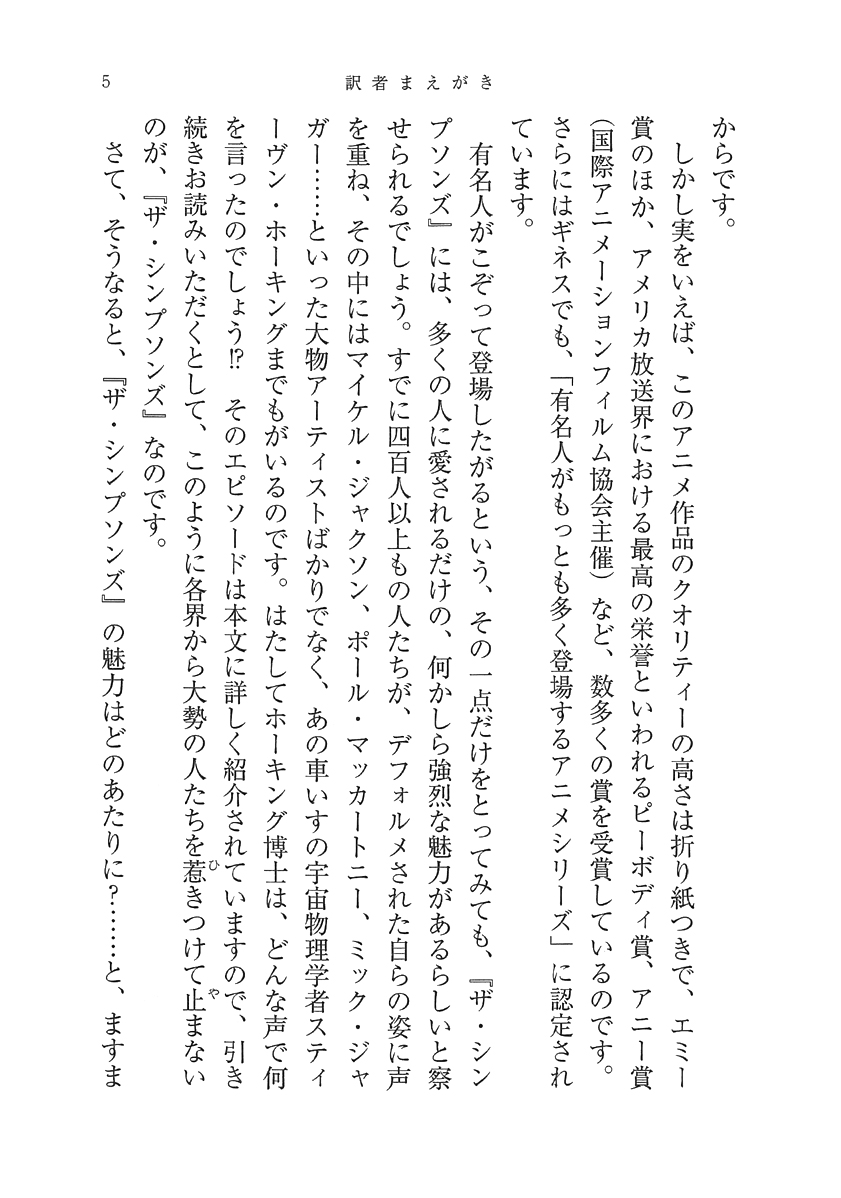 5
訳者まえがき
からです。
しかし実をいえば、このアニメ作品のクオリティーの高さは折り紙つきで、エミー
賞のほか、アメリカ放送界における最高の栄誉といわれるピーボディ賞、アニー賞
（国際アニメーションフィルム協会主催）など、数多くの賞を受賞しているのです。
さらにはギネスでも、「有名人がもっとも多く登場するアニメシリーズ」に認定され
ています。
有名人がこぞって登場したがるという、その一点だけをとってみても、『ザ・シン
プソンズ』には、多くの人に愛されるだけの、何かしら強烈な魅力があるらしいと察
せられるでしょう。すでに四百人以上もの人たちが、デフォルメされた自らの姿に声
を重ね、その中にはマイケル・ジャクソン、ポール・マッカートニー、ミック・ジャ
ガー……といった大物アーティストばかりでなく、あの車いすの宇宙物理学者スティ
ーヴン・ホーキングまでもがいるのです。はたしてホーキング博士は、どんな声で何
を言ったのでしょう!?　そのエピソードは本文に詳しく紹介されていますので、引き
続きお読みいただくとして、このように各界から大勢の人たちを惹ひきつけて止やまない
のが、『ザ・シンプソンズ』なのです。
さて、そうなると、『ザ・シンプソンズ』の魅力はどのあたりに？……と、ますま